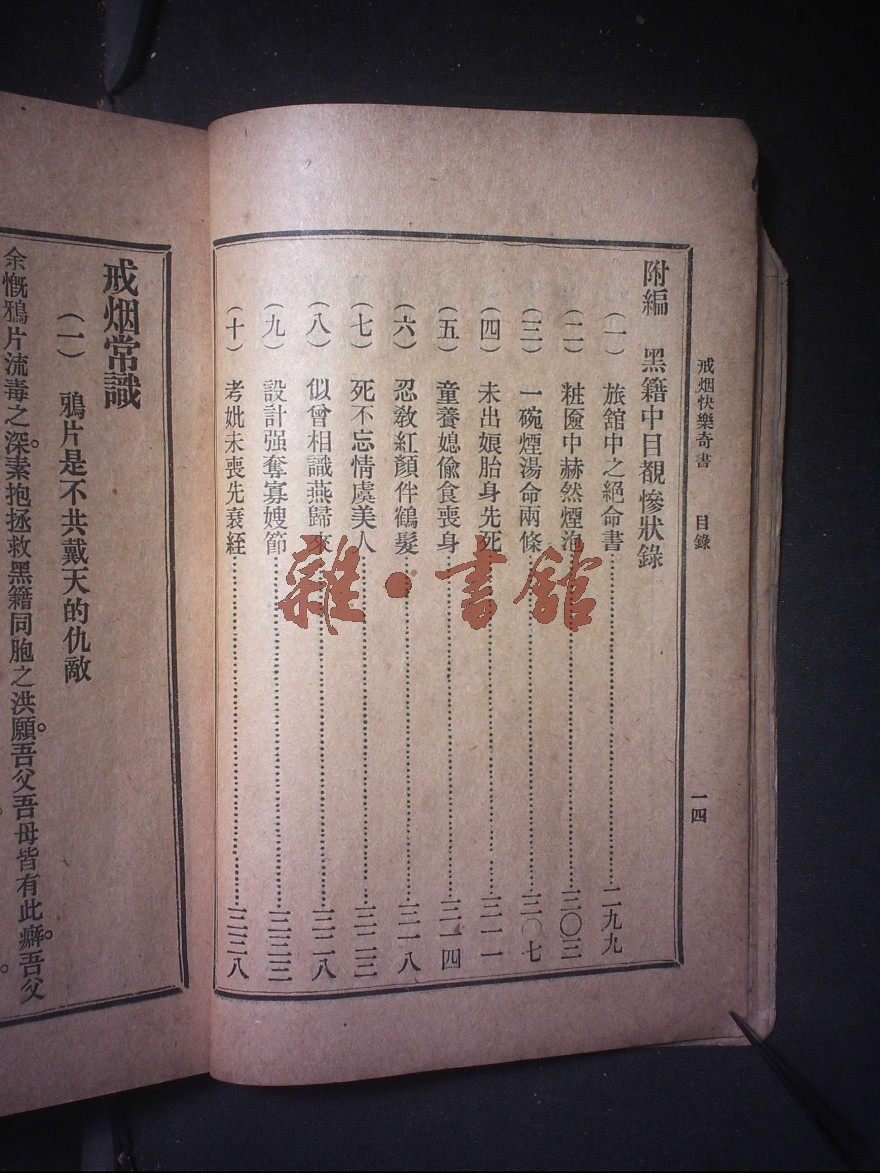 戒烟快樂奇書 目錄 一四
附編 黑籍中目覩慘狀錄
（一） 旅舘中之絕命書 二九九
（二） 粧匳中赫然煙泡 三〇三
（三） 一碗煙湯命兩條 三〇七
（四） 未出娠胎身先死 三一一
（五） 童養媳偸食喪身 三一四
（六） 忍敎紅顏伴鶴髮 三一八
（七） 死不忘情虞美人 三二三
（八） 似曾相識燕歸來 三二八
（九） 設計强奪寡嫂節 三三三
（十） 考妣未喪先衰絰 三三八
戒烟常識
（一） 鴉片是不共戴天的仇敵
余慨鴉片流毒之深。素抱拯救黑籍同胞之洪願。吾父吾母皆有此癖。吾父
雜·書舘